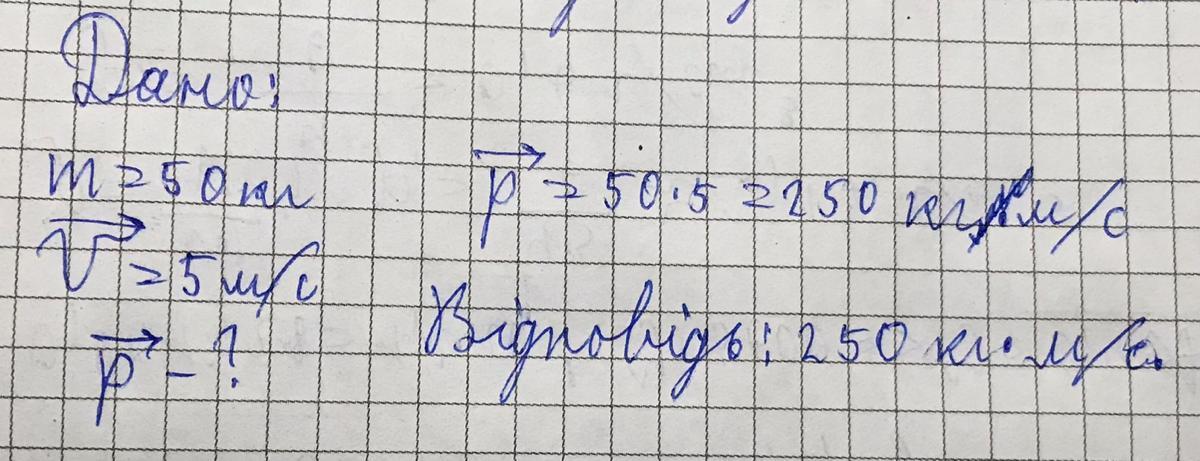 Дано:
m = 50 кг
v⃗ = 5 м/с
p⃗ - ?
p⃗ = 50 · 5 = 250 кг · м/с
Відповідь: 250 кг · м/с.